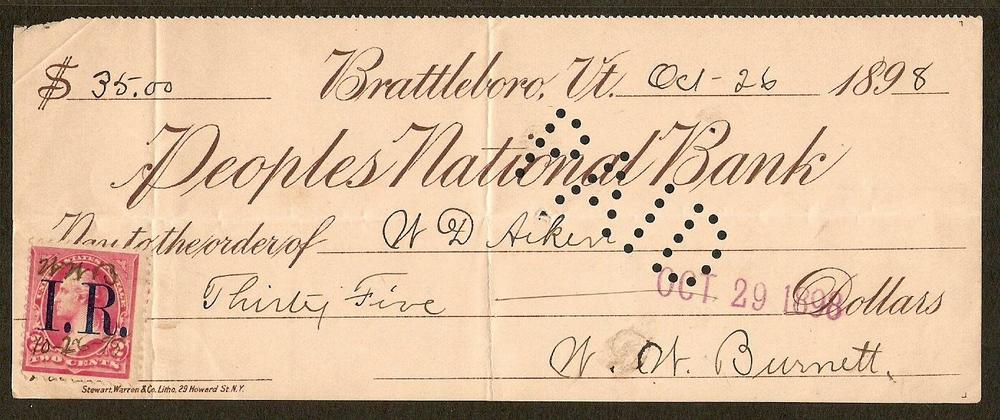 $ 35.00 Brattleboro, Vt. Oct - 26 1898
Peoples National Bank
PAID
Pay to the order of W D Aiken
Thirty Five Dollars
OCT 29 1898
W. W. Burnett.
W W B
I.R.
TWO CENTS
Stewart, Warren & Co. Litho, 29 Howard St. N.Y.